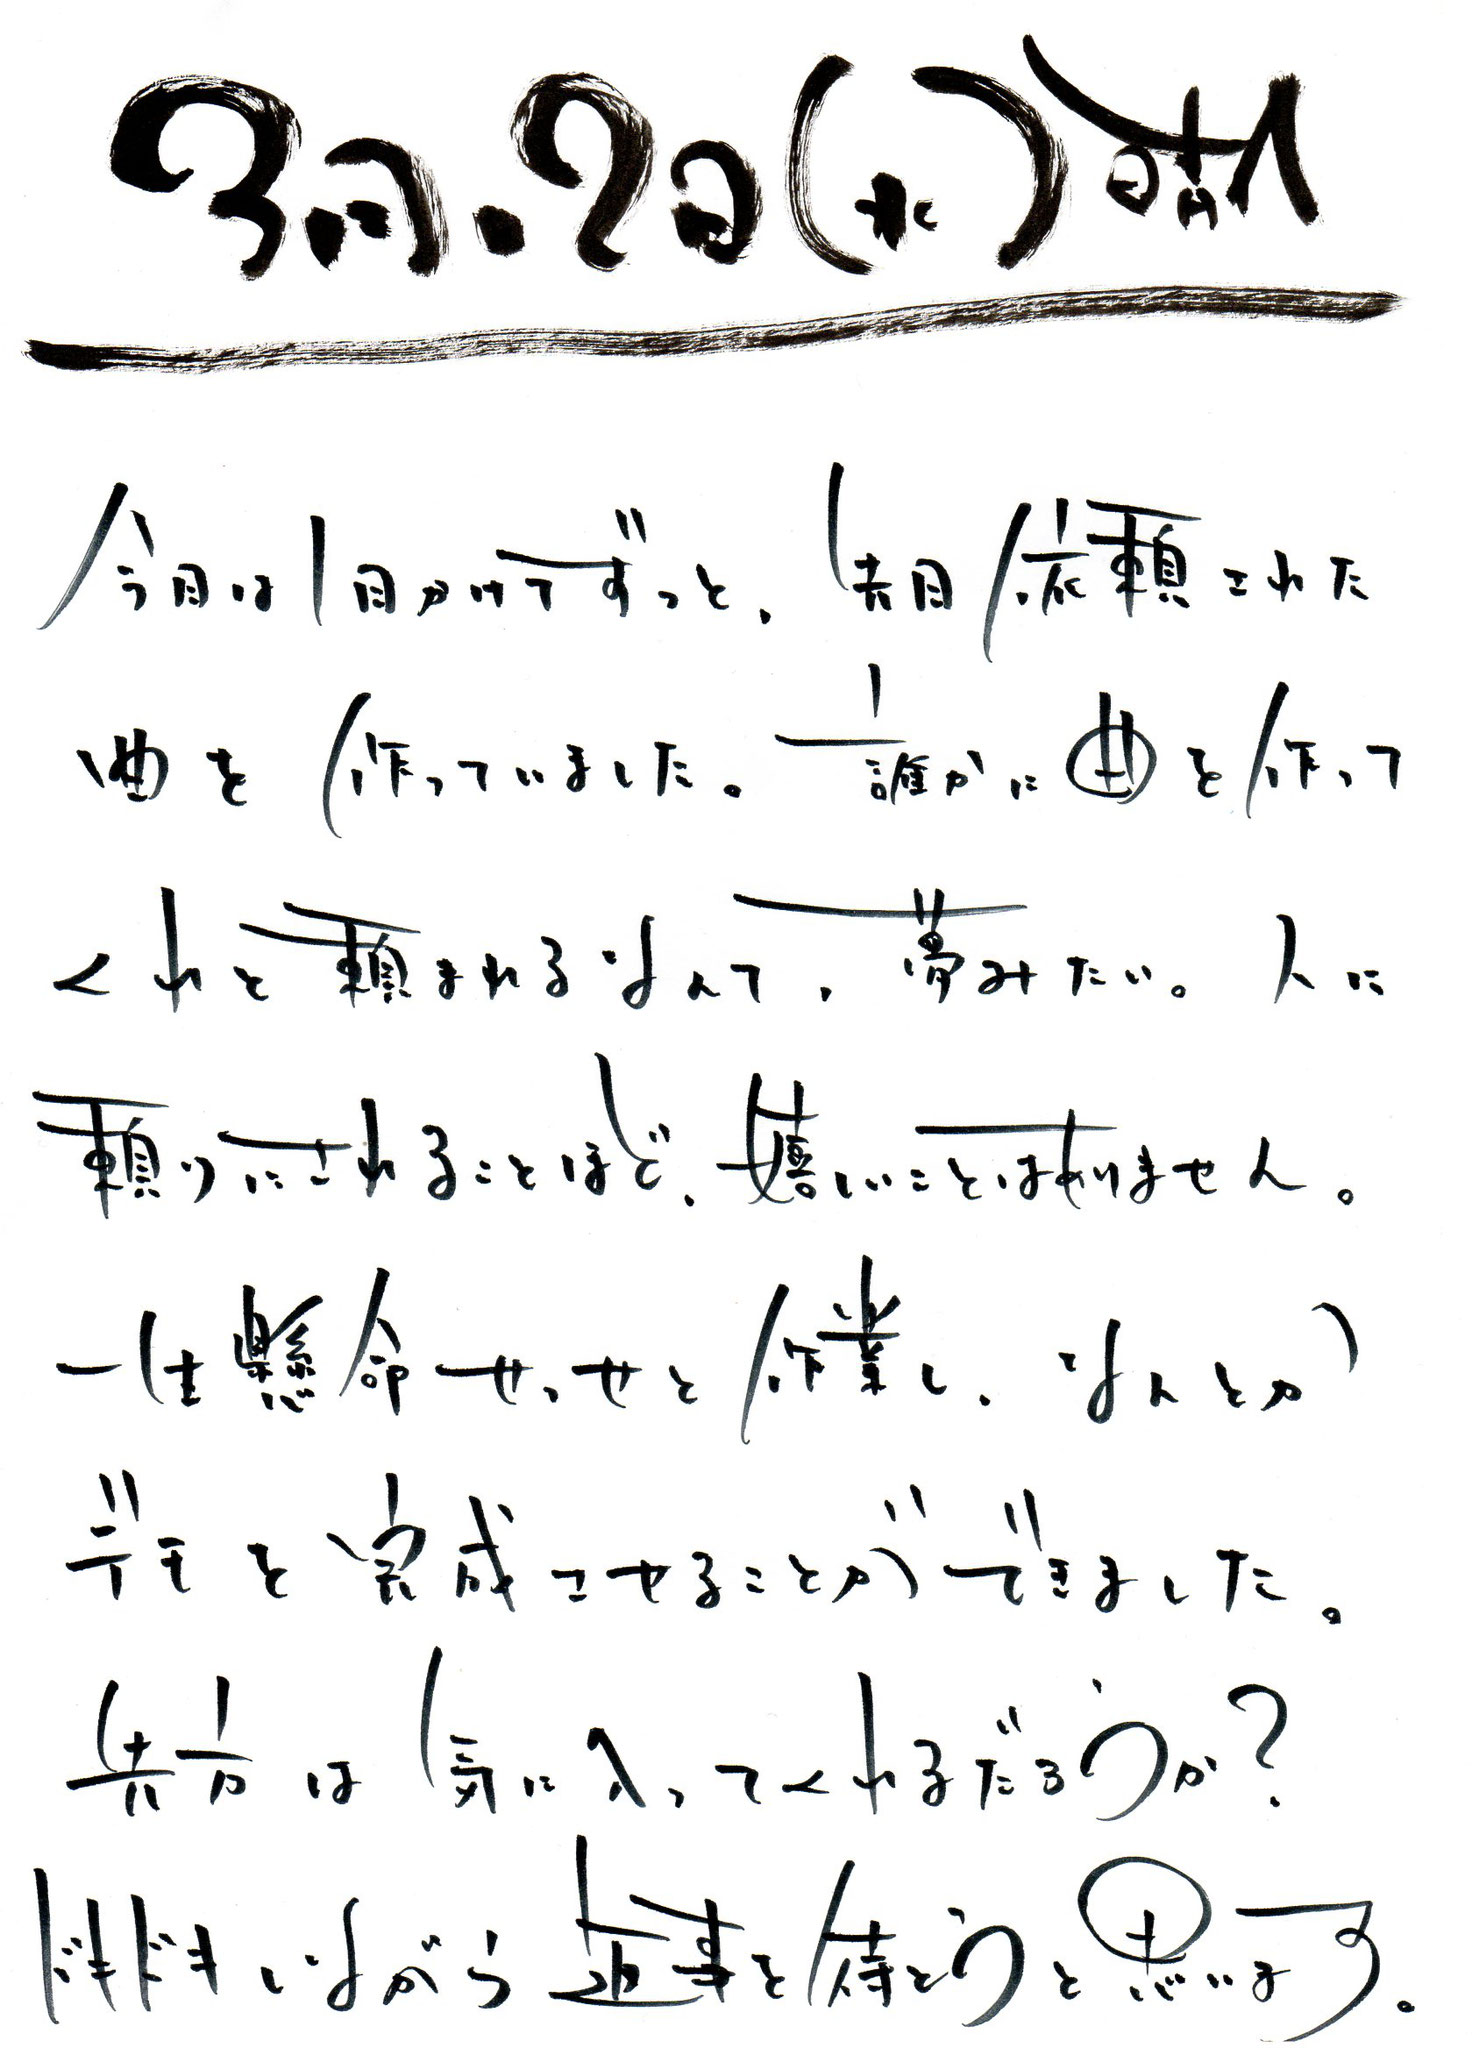 3月.2日(水)晴れ
今日は1日かけてずっと、先日依頼された
曲を作っていました。誰かに曲を作って
くれと頼まれるなんて、夢みたい。人に
頼りにされることほど、嬉しいことはありません。
一生懸命せっせと作業し、なんとか
デモを完成させることができました。
先方は気に入ってくれるだろうか？
ドキドキしながら返事を待とうと思います。